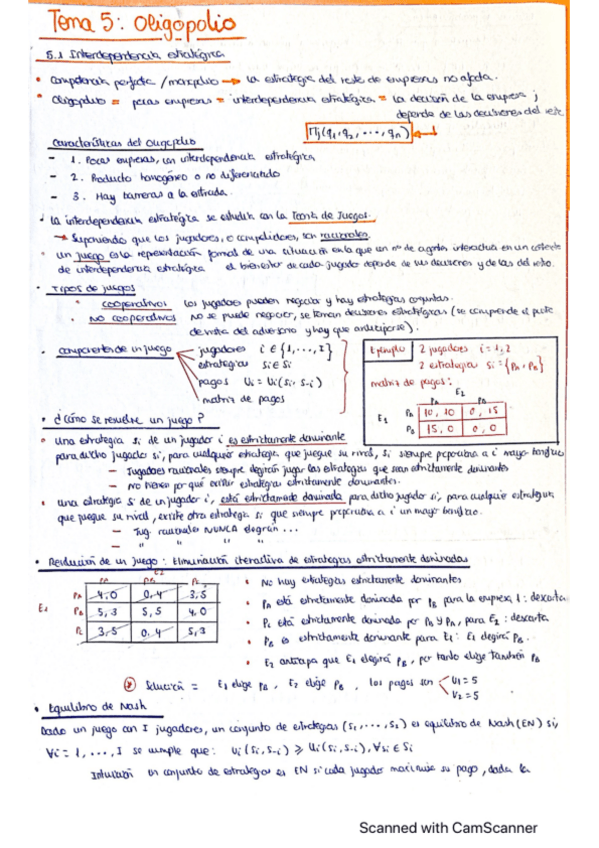 Tema 5: Oligopolio
5.1 Interdependencia estratégica
• Competencia perfecta / monopolio → la estrategia del resto de empresas no afecta.
• Oligopolio = pocas empresas = interdependencia estratégica = la decisión de la empresa j
depende de las decisiones del resto
Πj (q1, q2, ..., qn)
Características del Oligopolio
- 1. Pocas empresas, con interdependencia estratégica
- 2. Producto homogéneo o no diferenciado
- 3. Hay barreras a la entrada.
• La interdependencia estratégica se estudia con la Teoría de Juegos.
→ Suponiendo que los jugadores, o competidores, son racionales.
• Un juego es la representación formal de una situación en la que un nº de agentes interactúa en un contexto
de interdependencia estratégica el bienestar de cada jugador depende de sus decisiones y de las del resto.
• Tipos de juegos
• cooperativos los jugadores pueden negociar y hay estrategias conjuntas.
• No cooperativos no se puede negociar, se toman decisiones estratégicas (se comprende el punto
de vista del adversario y hay que anticiparse).
• Componentes de un juego
jugadores i ∈ {1, ..., I}
estrategias si ∈ Si
pagos Ui = Ui (si, s-i)
matriz de pagos
Ejemplo 2 jugadores i = 1, 2
2 estrategias Si = {PA, PB}
matriz de pagos:
E2
PA PB
E1 PA 10, 10 0, 15
PB 15, 0 0, 0
• ¿Cómo se resuelve un juego?
• una estrategia si de un jugador i es estrictamente dominante
para dicho jugador si, para cualquier estrategia que juegue su rival, si siempre proporciona a i mayor beneficio
- Jugadores racionales siempre elegirán jugar las estrategias que sean estrictamente dominantes
- No tienen por qué existir estrategias estrictamente dominantes.
• una estrategia si de un jugador i, está estrictamente dominada para dicho jugador si, para cualquier estrategia
que juegue su rival, existe otra estrategia si que siempre proporciona a i un mayor beneficio.
- Jug. racionales NUNCA elegirán ...
- " " " ...
• Resolución de un juego: Eliminación iterativa de estrategias estrictamente dominadas
E2
PA PB PC
E1 PA 4,0 0,4 3,5
PB 5,3 5,5 4,0
PC 3,5 0,4 5,3
• No hay estrategias estrictamente dominantes
• PA está estrictamente dominada por PB para la empresa 1: descarta.
• PC está estrictamente dominada por PA y PB, para E2: descarta.
• PB es estrictamente dominante para E1: E1 elegirá PB.
• E2 anticipa que E1 elegirá PB, por tanto elige también PB
Solución = E1 elige PB, E2 elige PB, los pagos son U1 = 5
U2 = 5
• Equilibrio de Nash
Dado un juego con I jugadores, un conjunto de estrategias (s1, ..., sI) es equilibrio de Nash (EN) si,
∀i = 1, ..., I se cumple que: Ui (si, s-i) ≥ Ui (si, s-i), ∀si ∈ Si
Intuición un conjunto de estrategias es EN si cada jugador maximiza su pago, dada la
Scanned with CamScanner